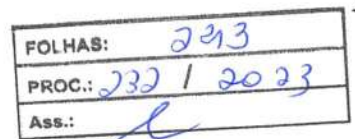 FOLHAS: 243
PROC.: 232 / 2023
Ass.: